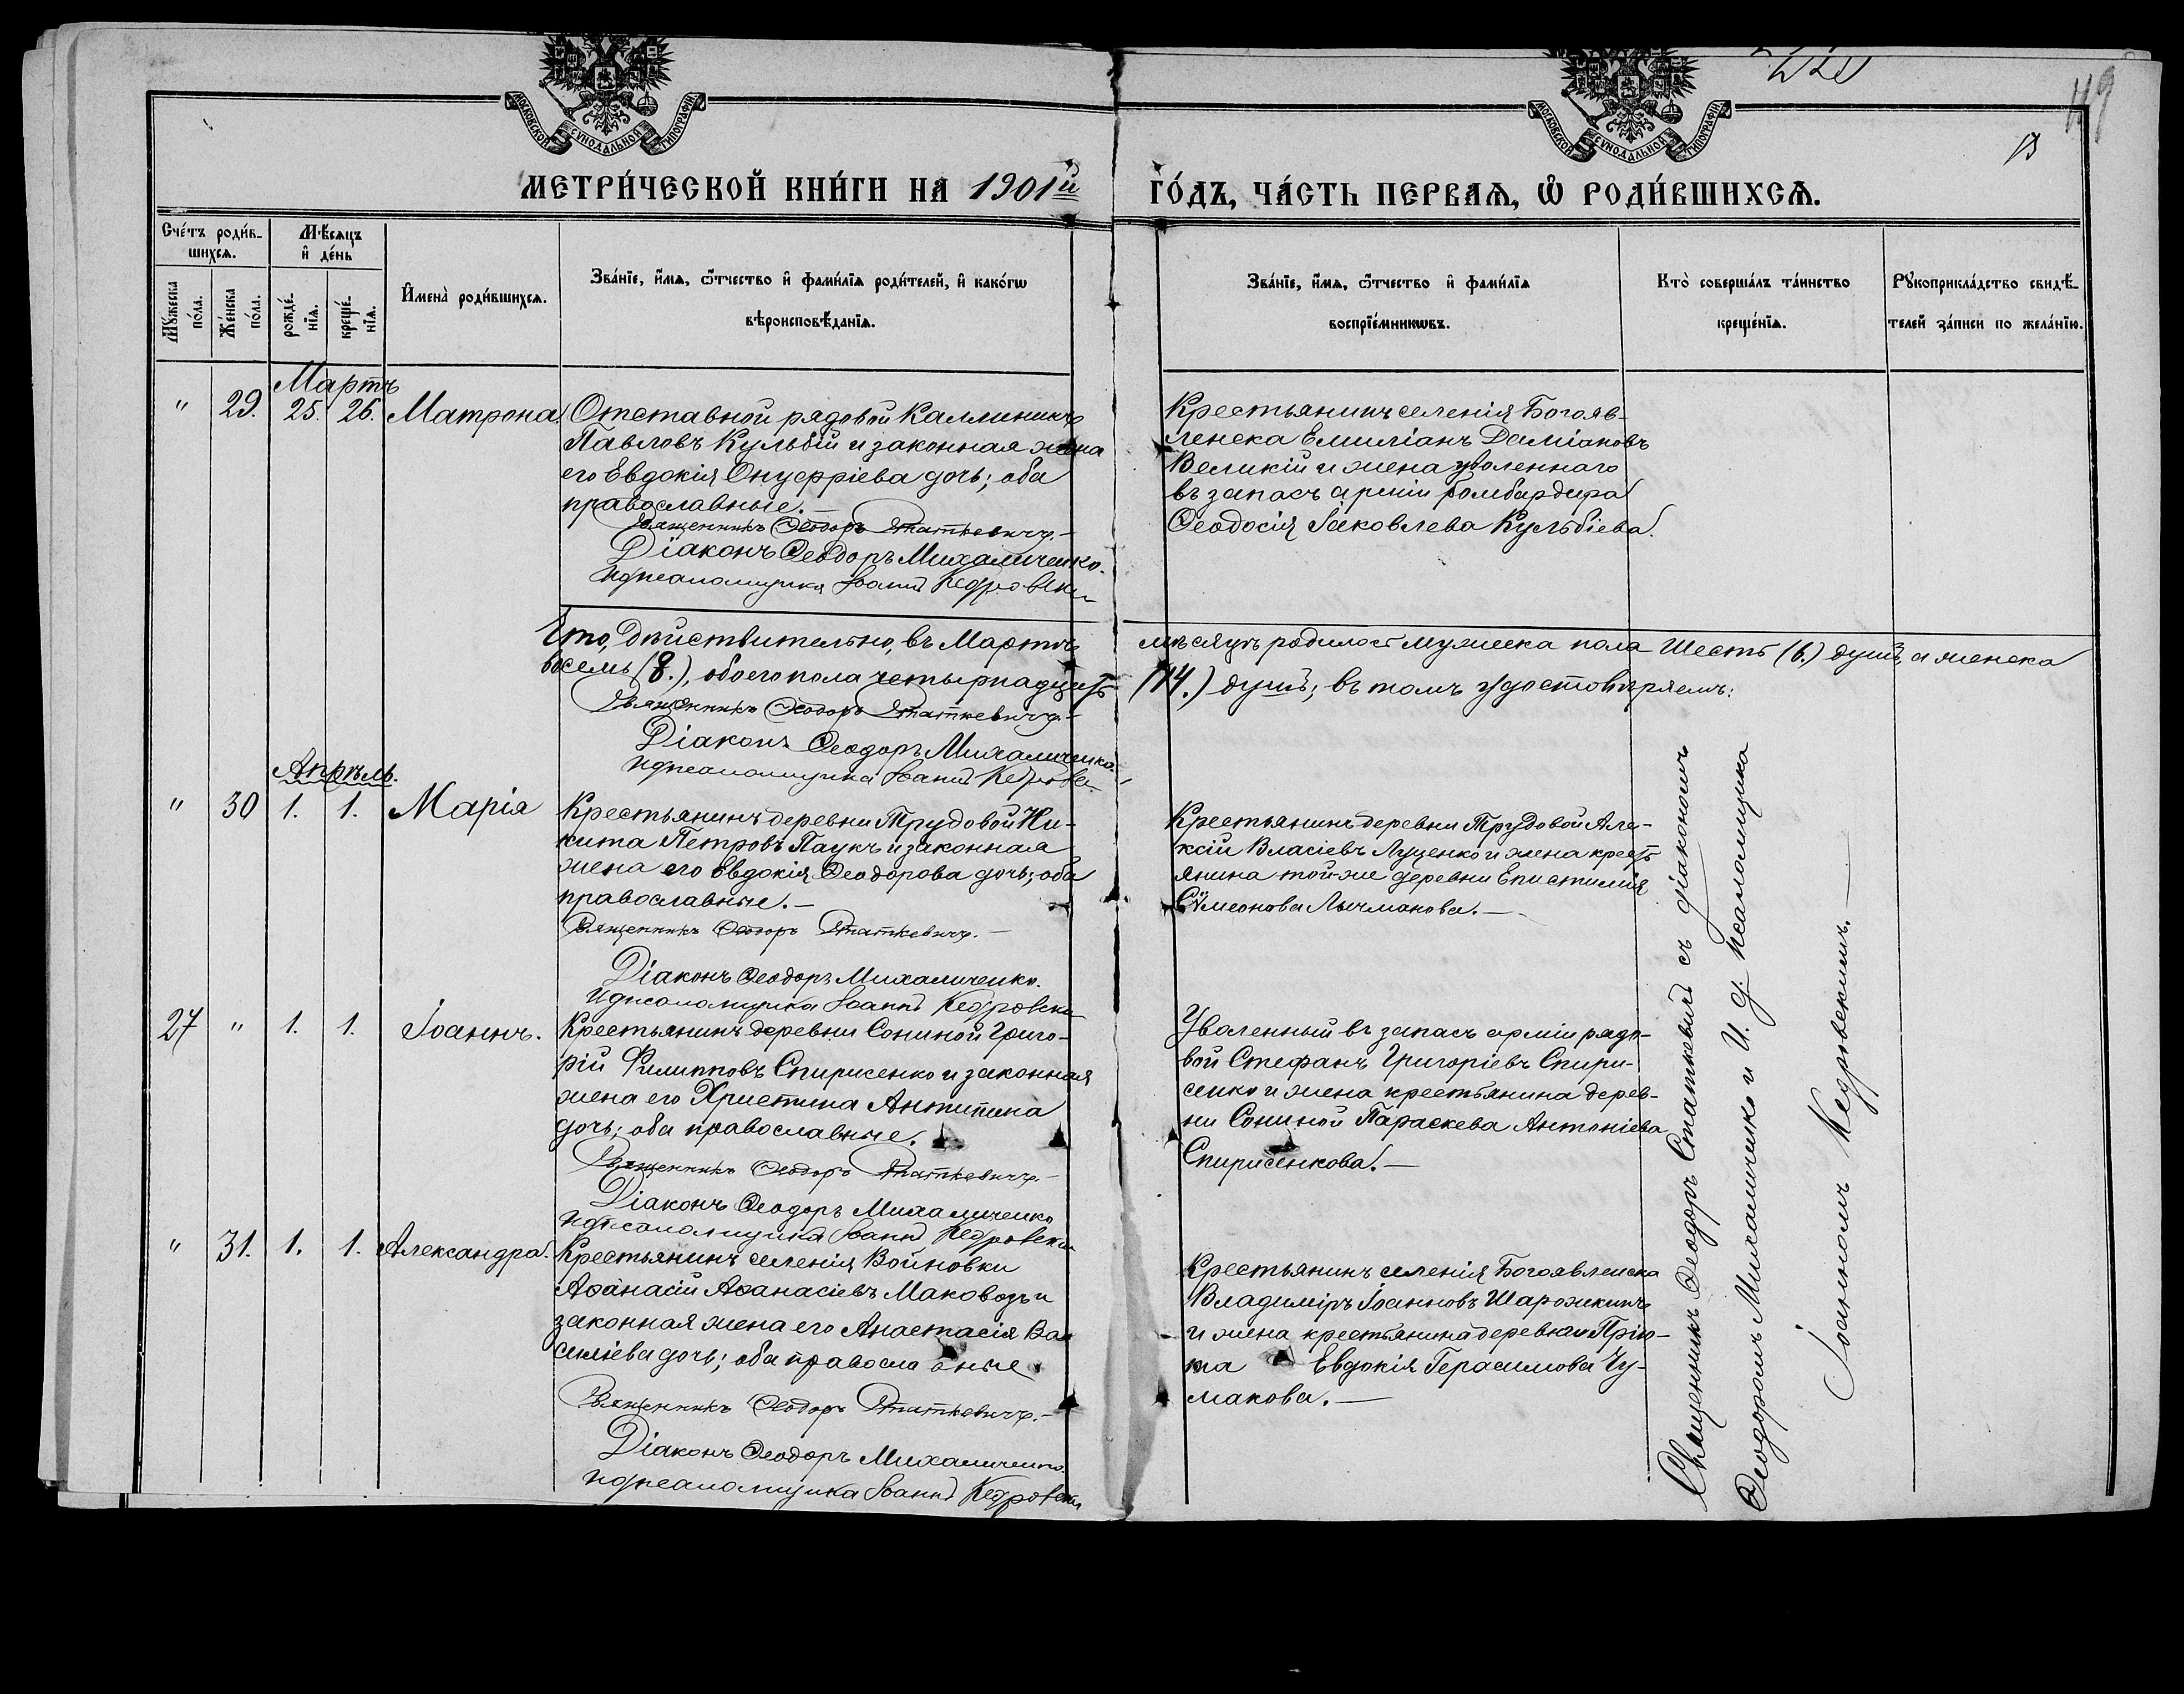 МОСКОВСКОЙ СУНОДАЛЬНОЙ ТИПОГРАФІИ
МОСКОВСКОЙ СУНОДАЛЬНОЙ ТИПОГРАФІИ
49
13
МЕТРИ́ЧЕСКОЙ КНИ́ГИ НА 1901й ГО́ДЪ, ЧА́СТЬ ПЕРВАѦ, Ѡ РОДИ́ВШИХСѦ.
Сче́тъ роди́в-
шихсѧ.
Мѣ́сѧцъ
и де́нь
Мꙋ́жеска
по́ла.
Же́нска
по́ла.
рожде́-
нїѧ.
креще́-
нїѧ.
Имена̀ роди́вшихсѧ.
Зва́нїе, и́мѧ, ѻ́тчество и фами́лїѧ роди́телей, и како́гѡ
вѣроисповѣ́данїѧ.
Зва́нїе, и́мѧ, ѻ́тчество и фами́лїѧ
воспрїе́мникѡвъ.
Кто̀ соверша́лъ та́инство
креще́нїѧ.
Рꙋкоприкла́дство свидѣ́-
телей за́писи по жела́нїю.
Мартъ
" 29. 25. 26. Матрона.
Отставной рядовой Каллиникъ
Павловъ Кульбій и законная жена
его Евдокія Онуфріева дочь; оба
православные.
Священникъ Ѳеодоръ Статкевичъ.
Діаконъ Ѳеодоръ Михаличенко.
И д псаломщика Іоаннъ Кедровскій
Крестьянинъ селенія Богояв-
ленска Емиліанъ Даміановъ
Великій и жена уволеннаго
въ запасъ арміи бомбардира
Ѳеодосія Іаковлева Кульбіева.
Что, действительно, въ Мартѣ мѣсяцѣ родилось мужеска пола Шесть (6.) душъ, а женска
восемь (8.), обоего пола четырнадцать (14.) душъ; въ томъ удостовѣряемъ:
Священникъ Ѳеодоръ Статкевичъ.
Діаконъ Ѳеодоръ Михаличенко.
И д псаломщика Іоаннъ Кедровскій
Апрѣль.
" 30 1. 1. Марія
Крестьянинъ деревни Трудовой Ни-
кита Петровъ Паукъ и законная
жена его Евдокія Ѳеодорова дочь; оба
православные.
Священникъ Ѳеодоръ Статкевичъ.
Діаконъ Ѳеодоръ Михаличенко.
И д псаломщика Іоаннъ Кедровскій
Крестьянинъ деревни Трудовой Але-
ксій Власіевъ Луценко и жена кресть
янина той-же деревни Епистимія
Сѵмеонова Лычманова.
27 " 1. 1. Іоаннъ.
Крестьянинъ деревни Сониной Григо-
рій Филипповъ Спирисенко и законная
жена его Христина Антипина
дочь; оба православные.
Священникъ Ѳеодоръ Статкевичъ.
Діаконъ Ѳеодоръ Михаличенко
И д псаломщика Іоаннъ Кедровскій
Уволенный въ запасъ арміи рядо-
вой Стефанъ Григоріевъ Спири-
сенко и жена крестьянина дерев-
ни Сониной Параскева Антоніева
Спирисенкова.
" 31. 1. 1. Александра.
Крестьянинъ селенія Войновки
Аѳанасій Аѳанасіевъ Маковозъ и
законная жена его Анастасія Ва
силіева дочь; оба правосла вные
Священникъ Ѳеодоръ Статкевичъ.
Діаконъ Ѳеодоръ Михаличенко.
И д псаломщика Іоаннъ Кедровскій
Крестьянинъ селенія Богоявленска
Владиміръ Іоанновъ Шарожкинъ
и жена крестьянина деревни Прію-
та Евдокія Герасимова Чу-
макова.
Священникъ Ѳеодоръ Статкевичъ съ діакономъ
Ѳеодоромъ Михаличенко и И. д. псаломщика
Іоанномъ Кедровскимъ.